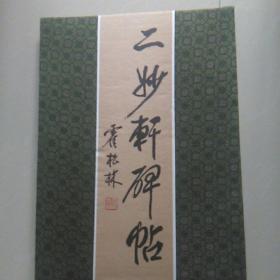 二妙軒碑帖
霍松林